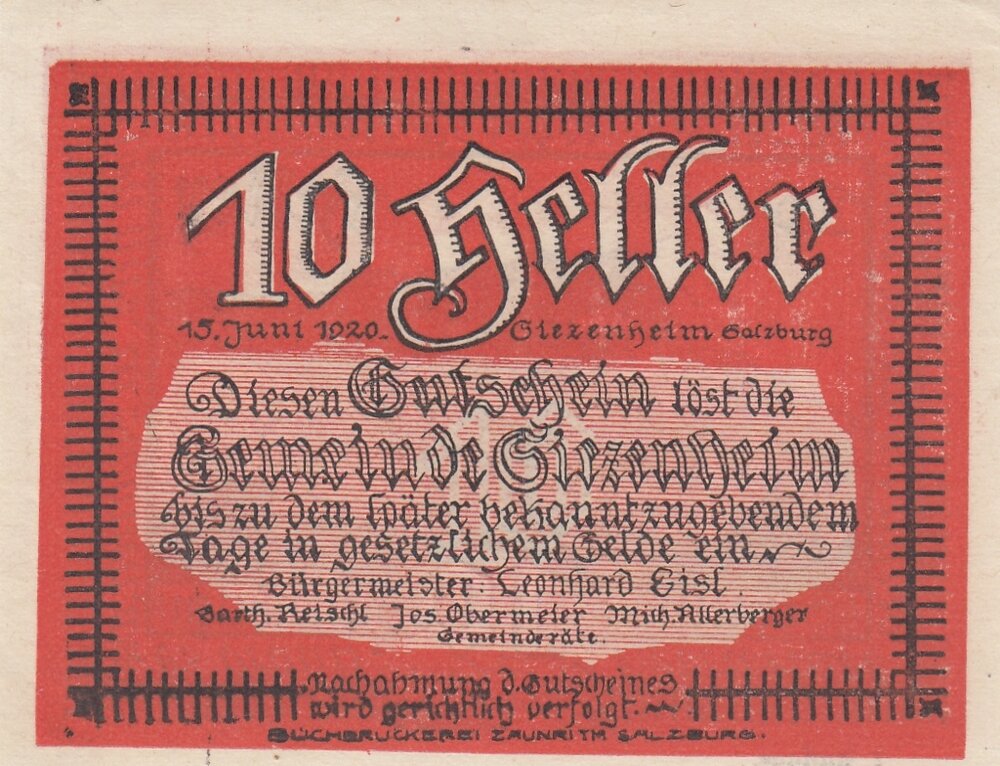 10 Heller
15. Juni 1920. Siezenheim Salzburg
Diesen Gutschein löst die
Gemeinde Siezenheim
bis zu dem später bekanntzugebendem
Tage in gesetzlichem Gelde ein.
Bürgermeister: Leonhard Eisl.
Barth. Reischl Jos. Obermeier Mich. Allerberger
Gemeinderäte.
Nachahmung d. Gutscheines
wird gerichtlich verfolgt.
BUCHDRUCKEREI ZAUNRITH SALZBURG.